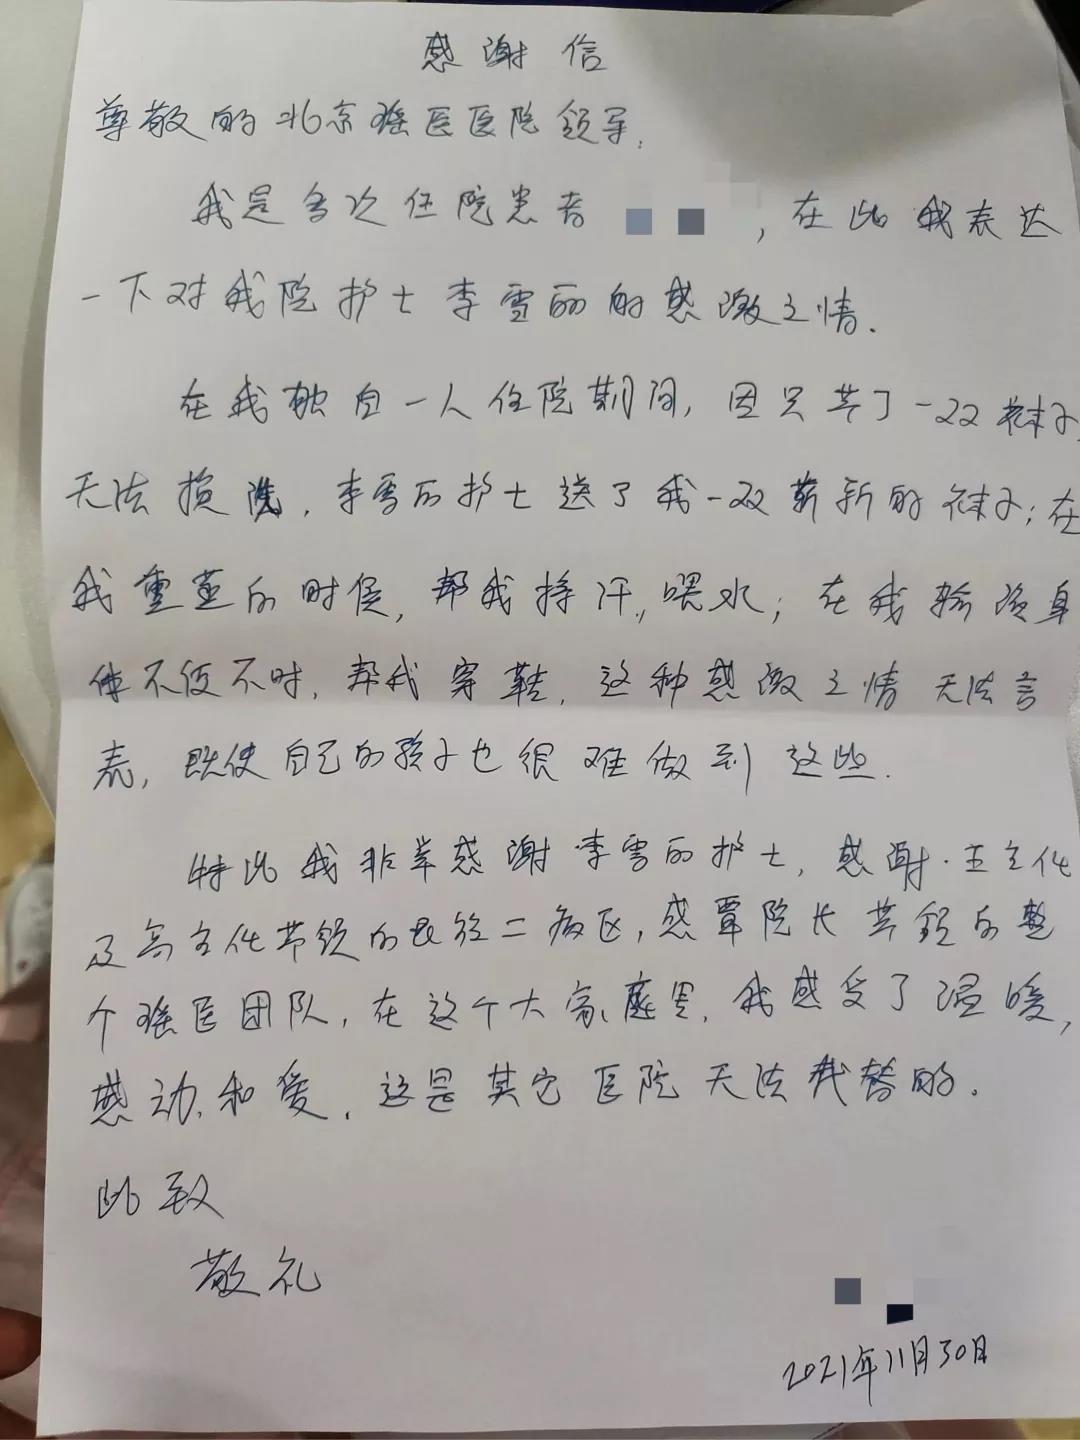 感谢信
尊敬的北京瑶医医院领导:
我是多次住院患者 ,在此我表达
一下对我院护士李雪丽的感激之情.
在我独自一人住院期间,因只共了一双袜子,
无法换洗,李雪丽护士送了我一双崭新的袜子;在
我熏蒸的时候,帮我擦汗,喂水;在我输液身
体不便不时,帮我穿鞋,这种感激之情无法言
表,既使自己的孩子也很难做到这些.
特此我非常感谢李雪丽护士,感谢王主任
及高主任带领的 二病区,感覃院长带领的整
个瑶医团队,在这个大家庭里,我感受了温暖,
感动和爱,这是其它医院无法代替的.
此致
敬礼
2021年11月30日